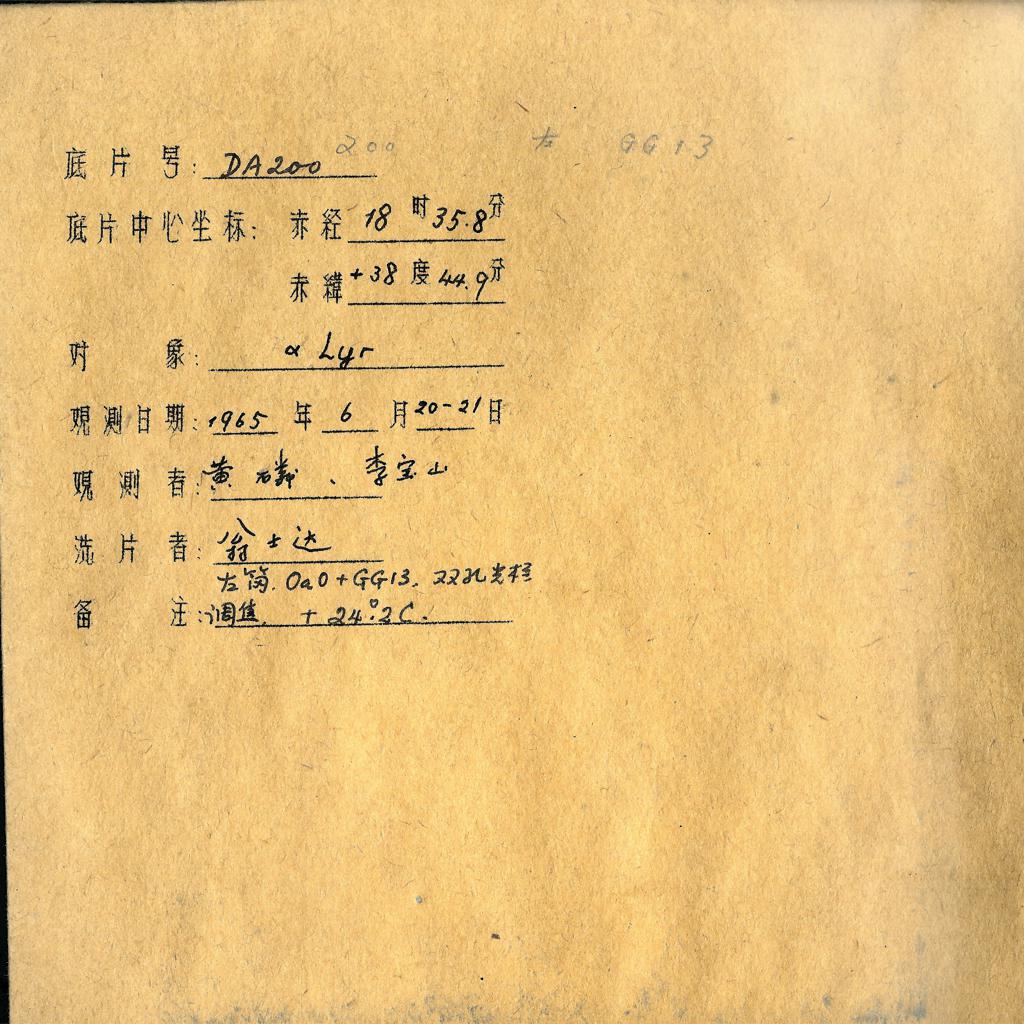 200 左 GG13
底片号: DA200
底片中心坐标: 赤经 18 时 35.8 分
赤緯 +38 度 44.9 分
对象: α Lyr
观测日期: 1965 年 6 月 20-21 日
观测者: 黄磷、李宝山
洗片者: 翁士达
左筒. OaO+GG13. 双孔光栏
备注: 调焦. +24°.2C.